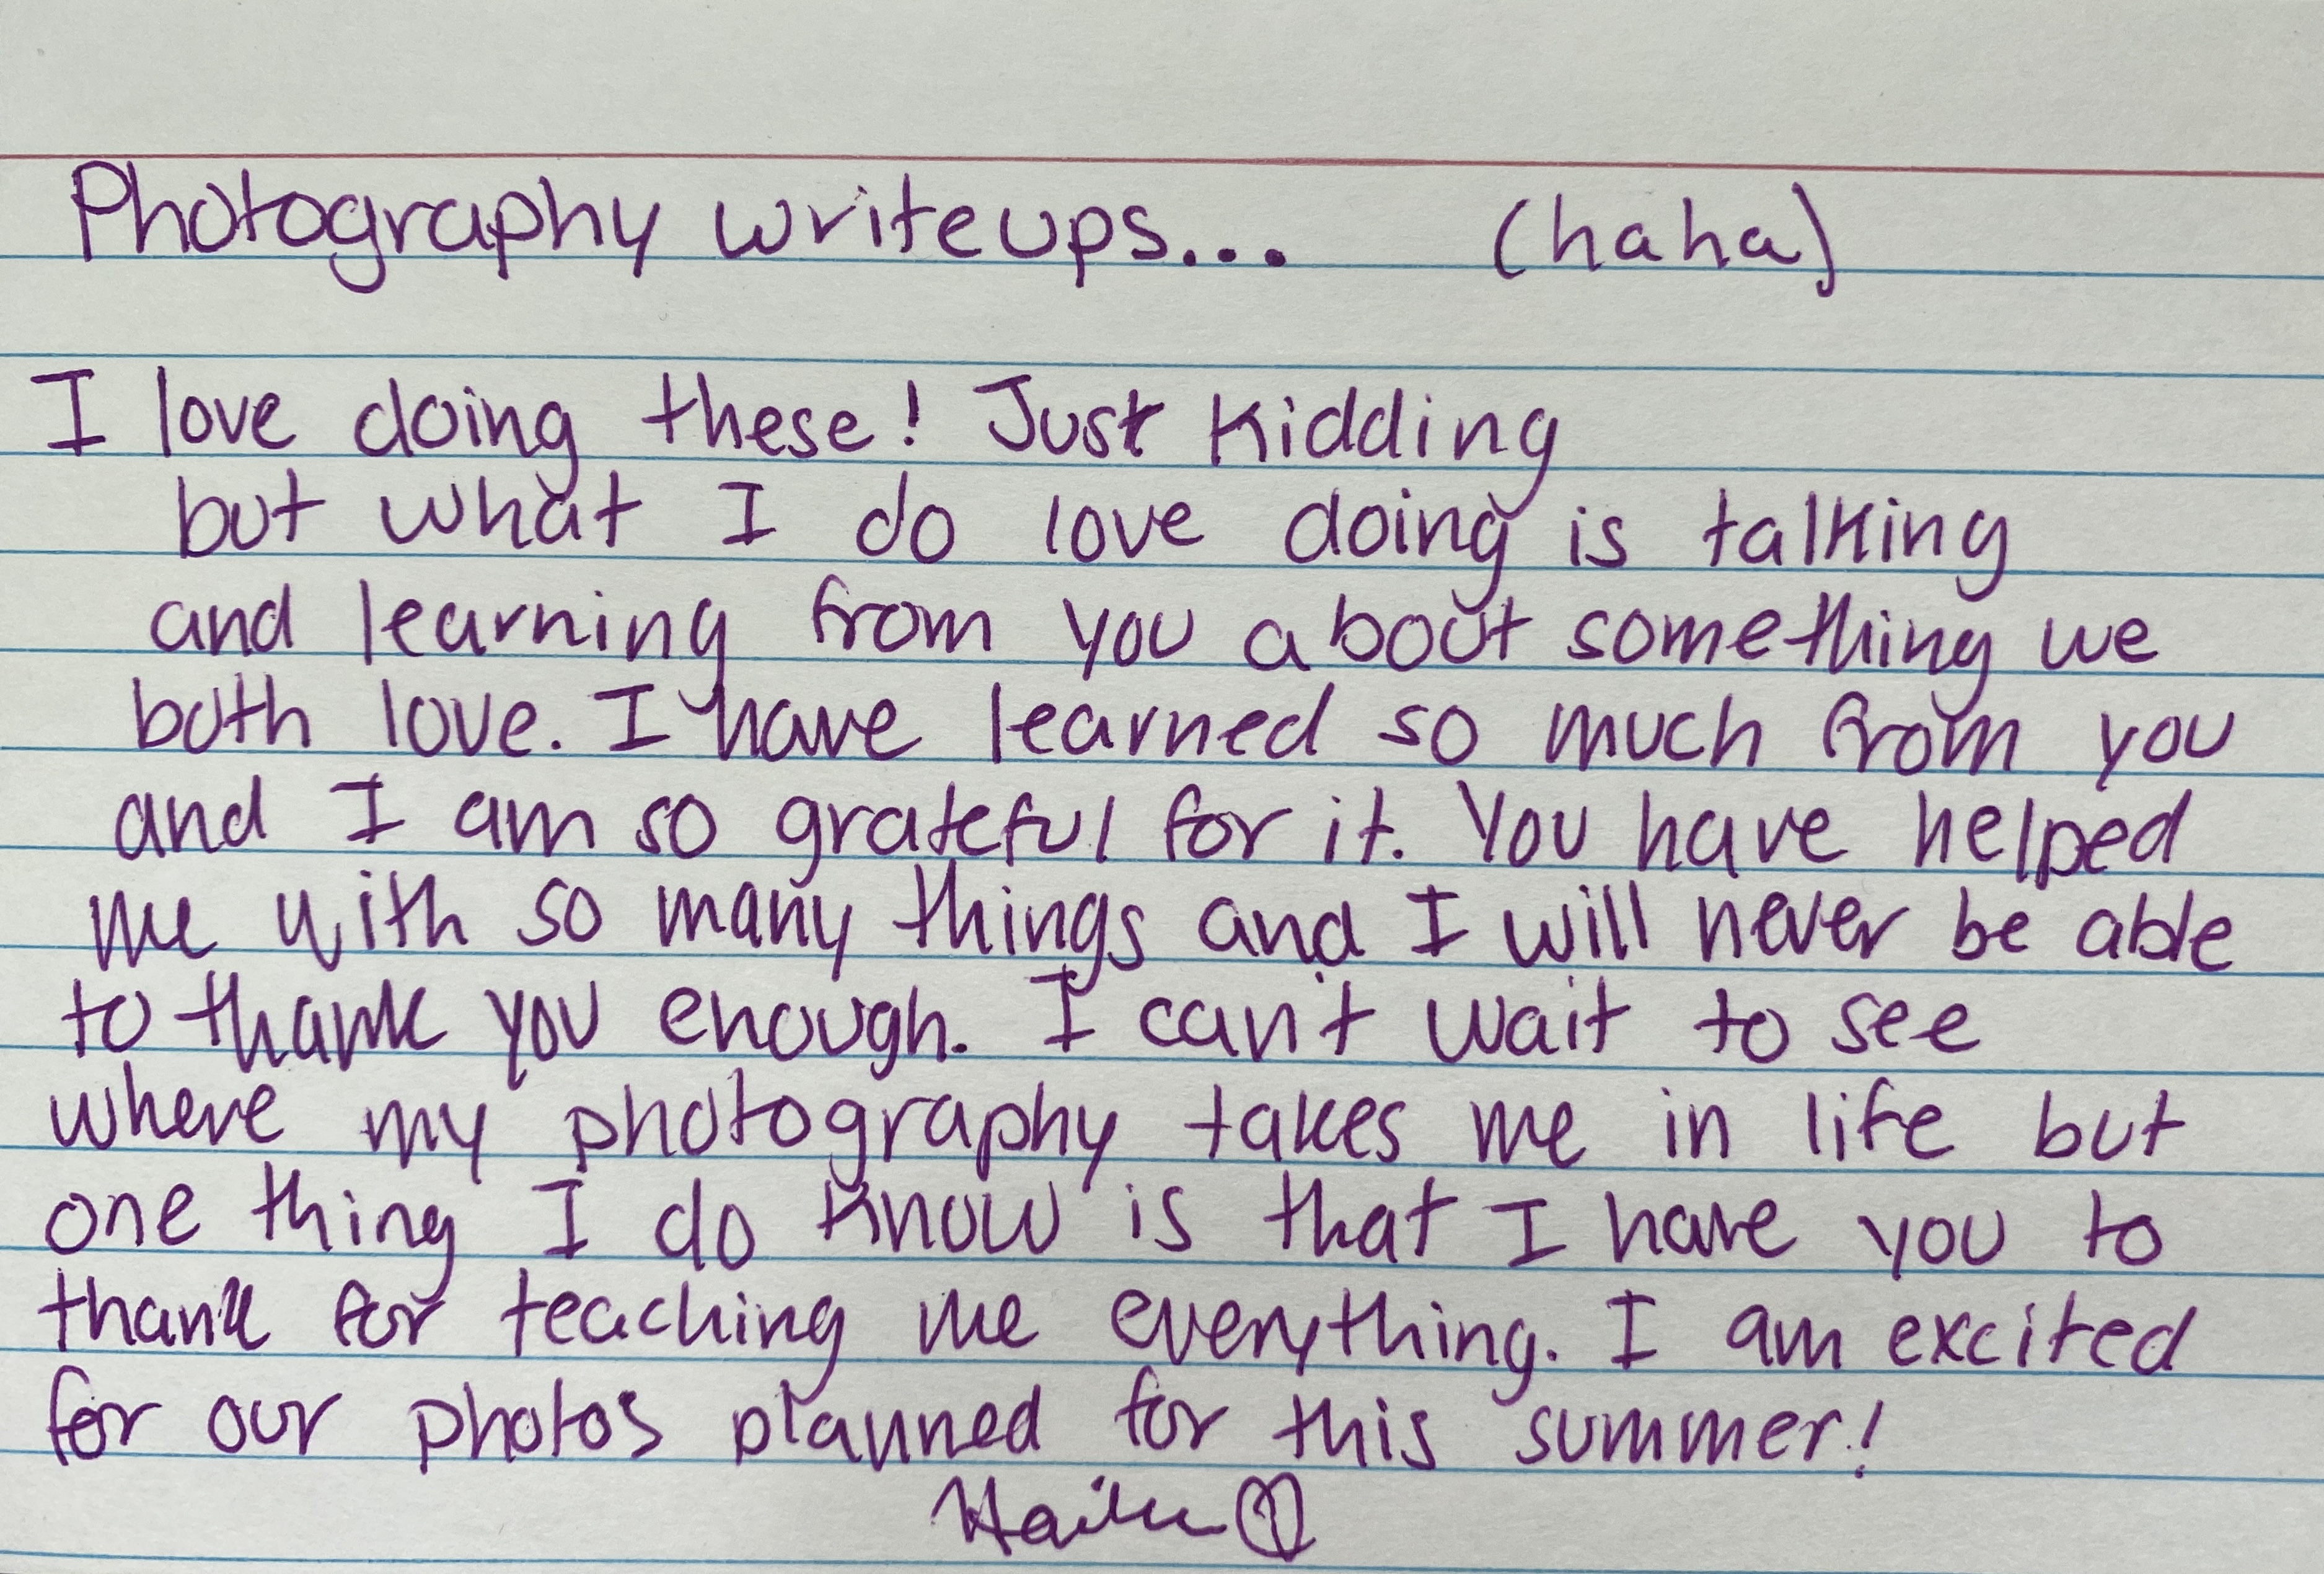 Photography writeups... (haha)
I love doing these! Just kidding
but what I do love doing is talking
and learning from you about something we
both love. I have learned so much from you
and I am so grateful for it. You have helped
me with so many things and I will never be able
to thank you enough. I can't wait to see
where my photography takes me in life but
one thing I do know is that I have you to
thank for teaching me everything. I am excited
for our photos planned for this summer!